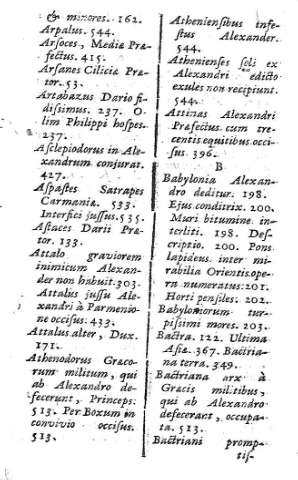 & minores. 162.
Arpalus. 544.
Arsoces, Mediæ Præ-
fectus. 415.
Arsanes Ciliciæ Præ-
tor. 53.
Artabazus Dario fi-
dissimus. 237. O-
lim Philippi hospes.
237.
Asclepiodorus in Ale-
xandrum conjurat.
427.
Aspastes Satrapes
Carmaniæ. 533.
Interfici jussus. 535.
Astaces Darii Præ-
tor. 133.
Attalo graviorem
inimicum Alexan-
der non habuit. 303.
Attalus jussu Ale-
xandri à Parmenio-
ne occisus. 433.
Attalus alter, Dux.
171.
Athenodorus Græco-
rum militum, qui
ab Alexandro de-
fecerunt, Princeps.
513. Per Boxum in
convivio occisus.
513.
Atheniensibus infe-
stus Alexander.
544.
Athenienses soli ex
Alexandri edicto
exules non recipiunt.
544.
Attinas Alexandri
Præfectus cum tre-
centis equitibus occi-
sus. 396.
B
Babylonia Alexan-
dro deditur. 198.
Ejus conditrix. 200.
Muri bitumine in-
terliti. 198. Des-
criptio. 200. Pons
lapideus inter mi-
rabilia Orientis ope-
ra numeratus. 201.
Horti pensiles. 202.
Babyloniorum tur-
pissimi mores. 203.
Bactra. 122. Ultima
Asiæ. 367. Bactria-
na terra. 349.
Bactriana arx à
Græcis militibus,
qui ab Alexandro
defecerant, occupa-
ta. 513.
Bactriani promp-
tis-